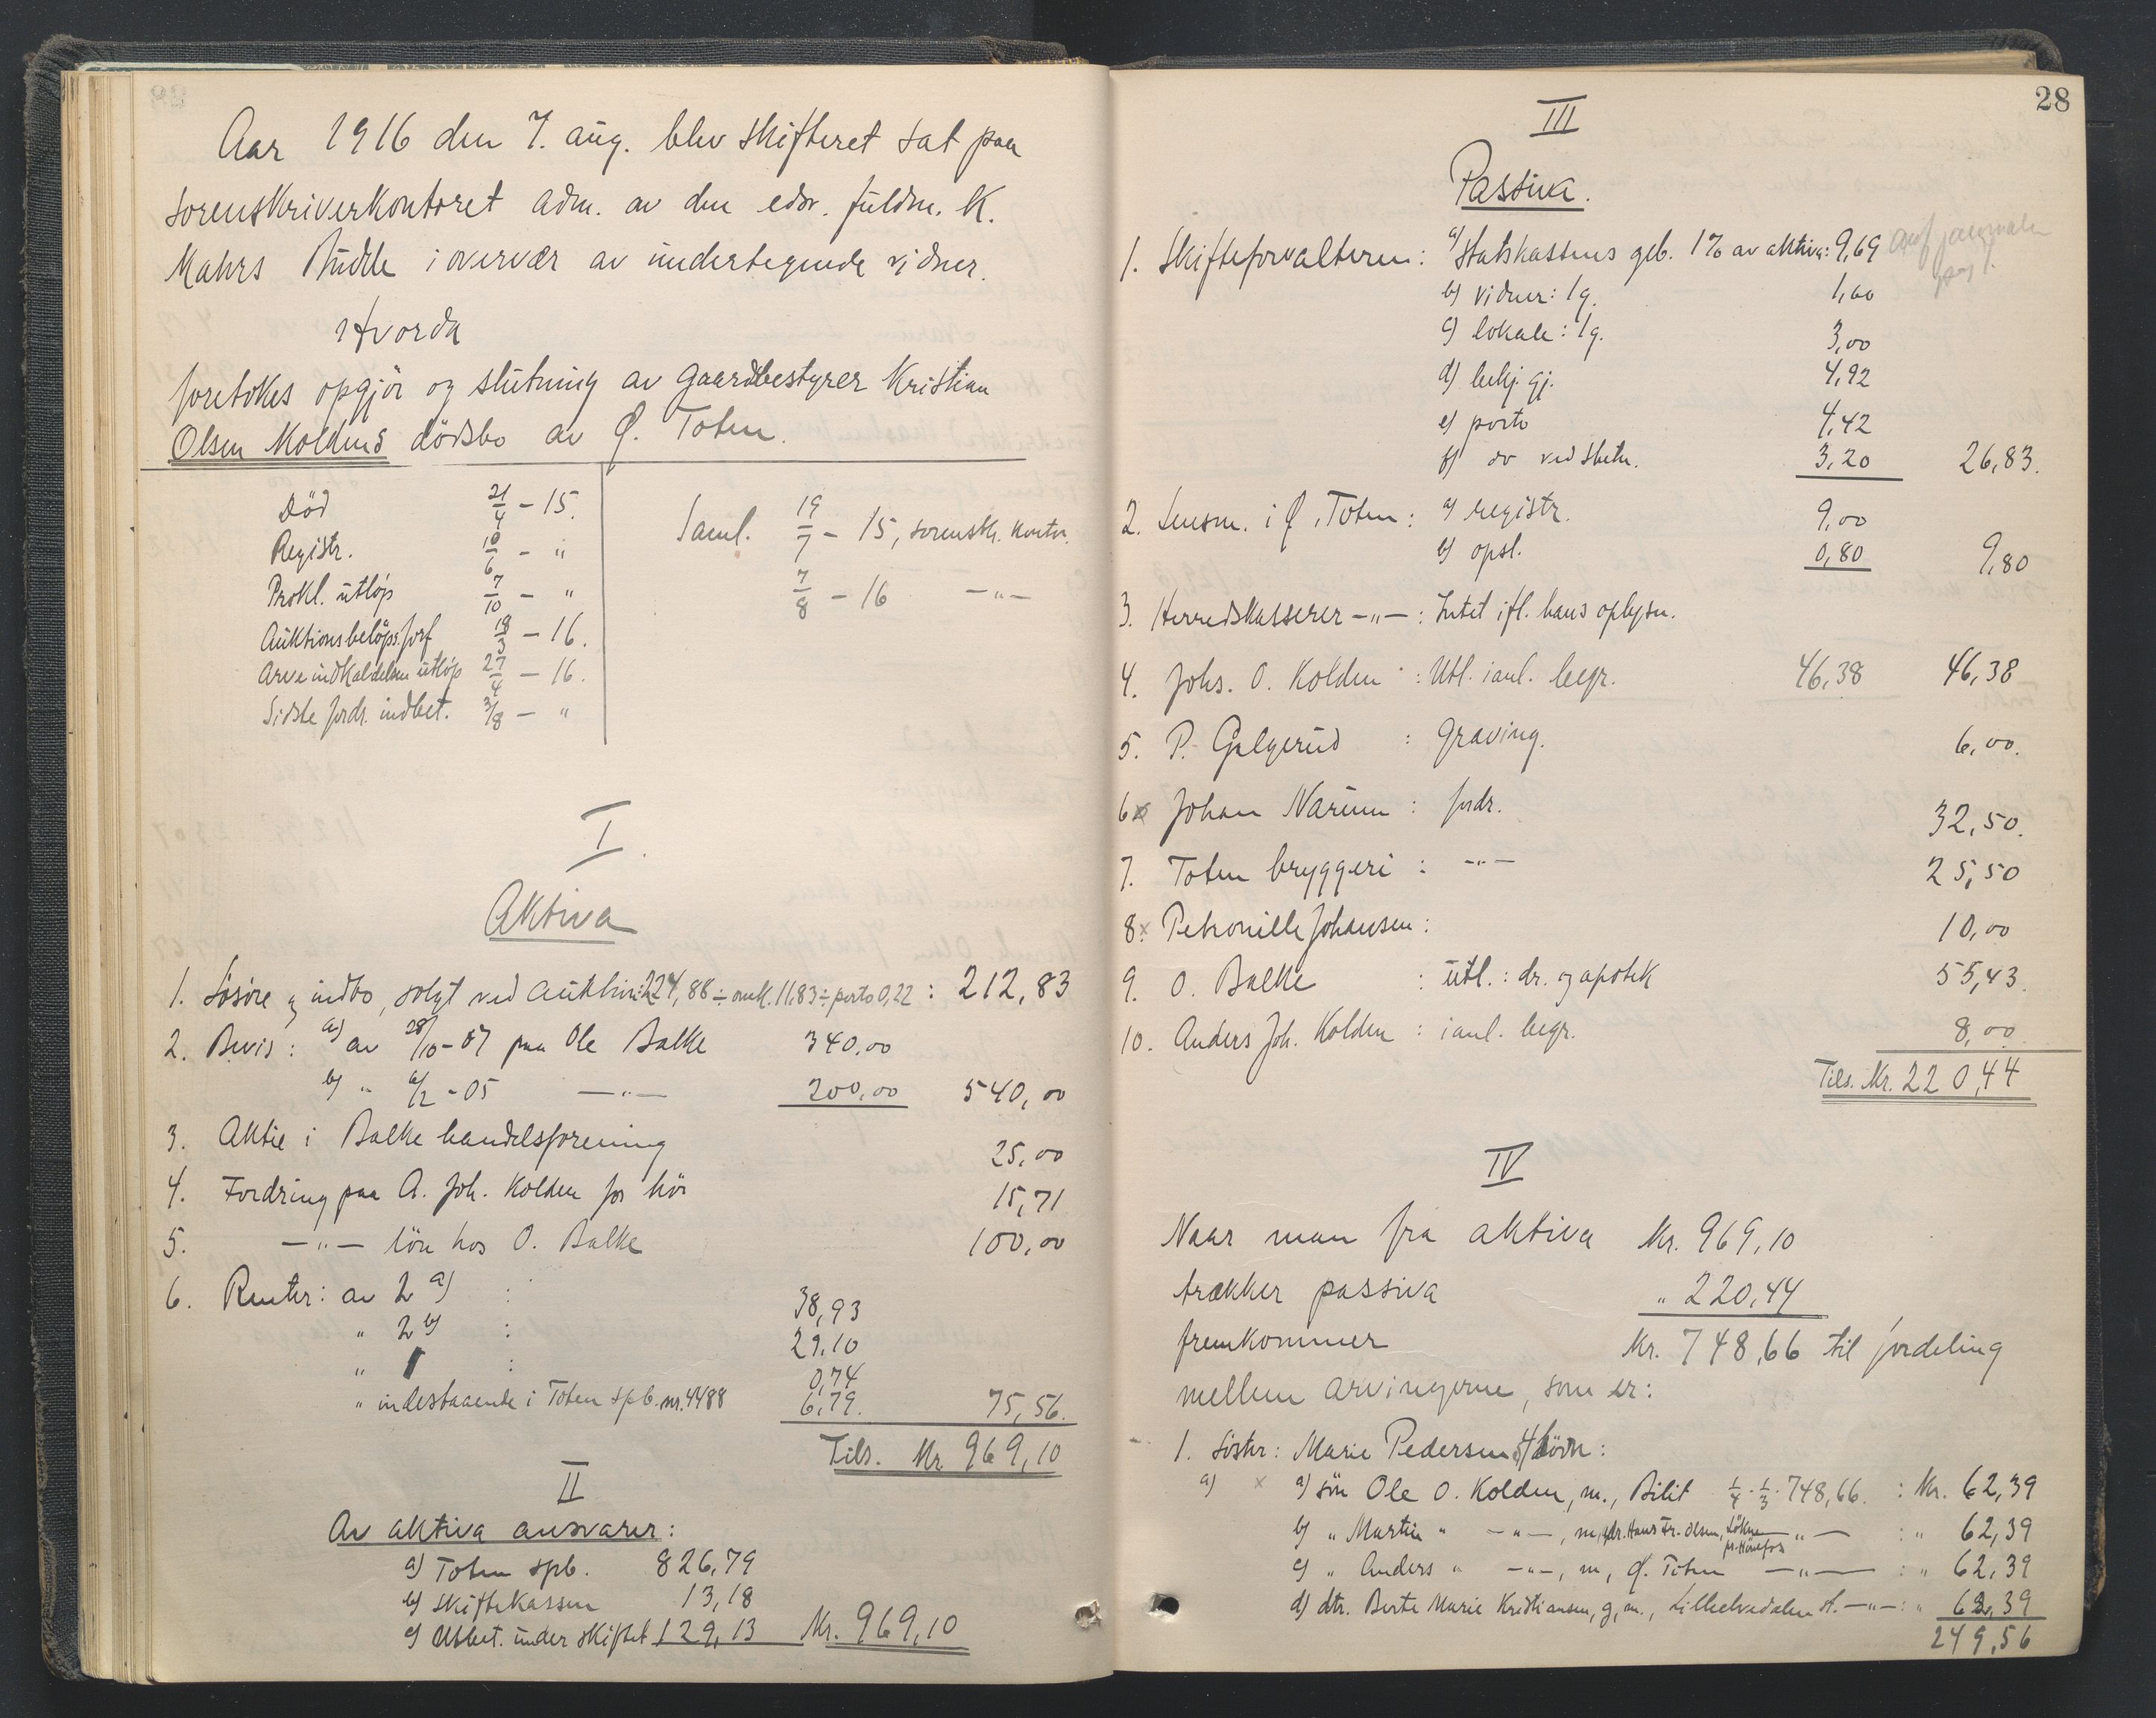 Aar 1916 den 7. aug. blev skifteret sat paa
sorenskriverkontoret adm. av den edsv. fuldm. K.
Mahrs Budde i overvær av undertegnede vidner.
Hvorda
foretokes opgjör og slutning av gaardbestyrer Kristian
Olsen Koldens dödsbo av Ø. Toten.
Död 21/4 - 15.
Registr. 10/6 - "
Prokl. utlöp 7/10 - "
Auktionsbelöps forf 18/3 - 16.
Arveindkaldelsen utlöp 27/4 - 16.
Sidste fordr. indbet. 3/8 - "
Saml. 19/7 - 15, sorenskr. kontor.
7/8 - 16 -"-
I.
Aktiva
1. Lösöre og indbo, solgt ved auktion: 224,88 ÷ omk. 11.83 ÷ porto 0,22 : 212,83
2. Bevis: a) av 28/10 - 07 paa Ole Balke 340,00
b) " 6/2 - 05 -"- 200,00 540,00
3. Aktie i Balke handelsforening 25,00
4. Fordring paa A. Joh. Kolden for hör 15,71
5. -"- lön hos O. Balke 100,00
6. Renter: av 2 a) : 38,93
" 2 b) : 29,10
" 1 : 0,74
" indestaaende i Toten spb. nr. 4488 6,79. 75,56.
Tils. Kr. 969,10
II
Av aktiva ansvarer:
a) Toten spb. 826,79
b) Skiftekassen 13,18
c) Utbet. under skiftet 129,13 Kr. 969,10
28
III
Passiva.
1. Skifteforvalteren: a) Statskassens geb. 1% av aktiva: 9,69
b) vidner: 1 g. 1,60
c) lokale: 1 g. 3,00
d) bekj. gj. 4,92
e) porto 4,42
f) do ved slutn. 3,20 26,83.
2. Lensm. i Ø. Toten: a) registr. 9,00
b) opsl. 0,80 9,80
3. Herredskasserer -"- : Intet ifl. hans oplysn.
4. Johs. O. Kolden : Utl. i anl. begr. 46,38 46,38
5. P. Galgerud : graving. 6,00.
6x Johan Narum : fordr. 32,50.
7. Toten bryggeri : -"- 25,50
8x Petronille Johansen: 10,00
9. O. Balke : utl.: dr. og apotek 55,43.
10. Anders Joh. Kolden : i anl. begr. 8,00
Tils. Kr. 220,44
IV
Naar man fra aktiva Kr. 969,10
trækker passiva " 220,44
fremkommer Kr. 748,66 til fordeling
mellem arvingerne, som er:
1. Söster: Marie Pedersens 4 börn:
a) x a) sön Ole O. Kolden, m., Bilit 1/4 · 1/3 · 748,66. : Kr. 62,39
b) " Martin " -"-, m, adr. Hans Fr. Olsen, Lökne pr. Hönefos -"- : " 62,39
c) " Anders " -"-, m, Ø. Toten -"- : " 62,39
d) dtr. Berte Marie Kristiansen, g, m., Lilleelvedalen st. -"- : " 62,39
249,56